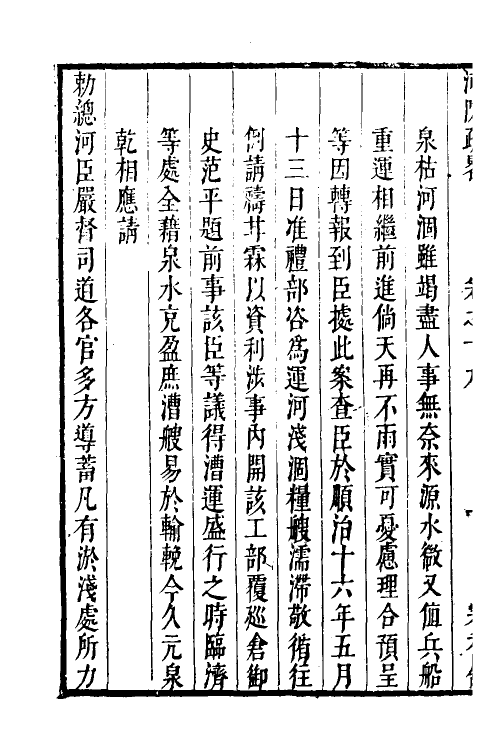 泉枯河涸雖竭盡人事無奈來源水微又值兵船
重運相繼前進倘天再不雨實可憂慮理合預呈
等因轉報到臣據此案查臣於順治十六年五月
十三日准禮部咨爲運河淺涸糧艘濡滯敬循往
例請禱甘霖以資利涉事內開該工部覆巡倉御
史范平題前事該臣等議得漕運盛行之時臨濟
等處全藉泉水充盈庶漕艘易於輸輓今久亢泉
乾相應請
勑總河臣嚴督司道各官多方導蓄凡有淤淺處所力